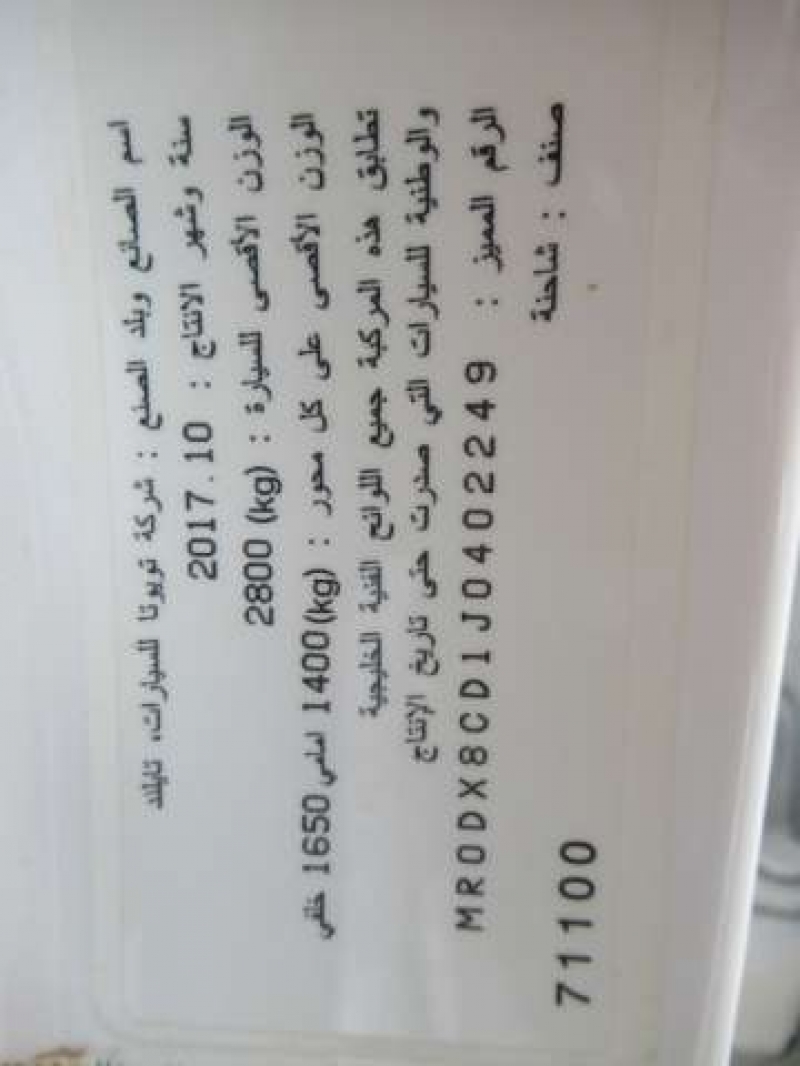 اسم الصانع وبلد الصنع : شركة تويوتا للسيارات، تايلند
سنة وشهر الانتاج : 2017.10
الوزن الأقصى للسيارة : 2800 (kg)
الوزن الأقصى على كل محور : (kg)1400 امامي 1650 خلفي
تطابق هذه المركبة جميع اللوائح الفنية الخليجية
والوطنية للسيارات التي صدرت حتى تاريخ الإنتاج
الرقم المميز : MR0DX8CD1J0402249
صنف : شاحنة
71100